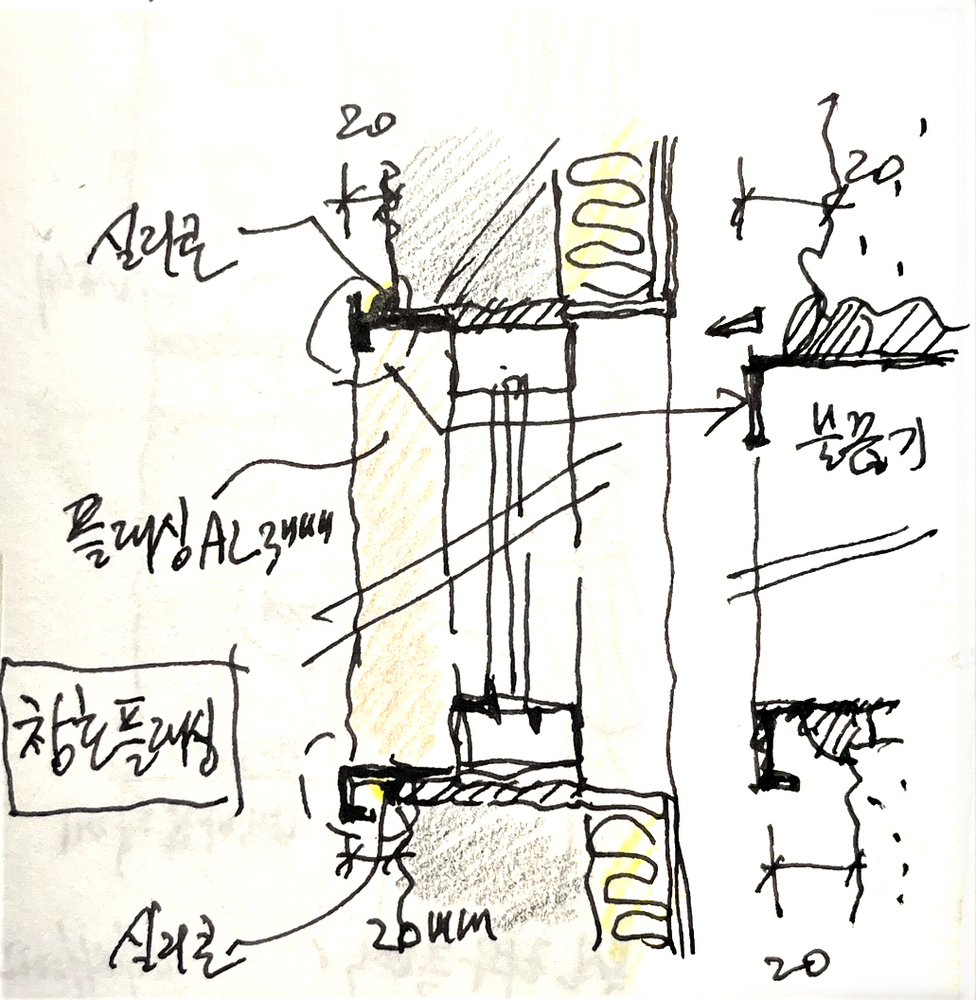 20
20
실리콘
물끊기
플래싱 AL 3mm
창호플래싱
실리콘
20mm
20